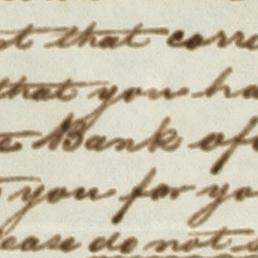 that corre
that you ha
Bank of
you for yo
ease do not s